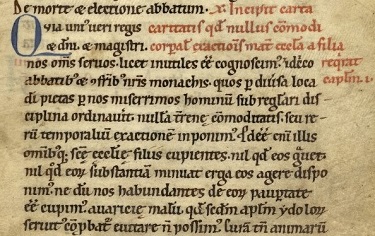 De morte & electione abbatum. X. Incipit carta
Quia unius ueri regis caritatis qđ nullus cōmodi
& dñi & magistri. corꝑal exactionē mat̃ eccl̃a a filia
nos om̃s seruos. licet inutiles eē cognoscim⁹. idcco reqirat
abbatib⁹ & c̃frib⁹ nr̃is monachis. quos ꝑ diuͥsa loca capłm. i.
di pietas ꝑ nos miserrimos hominū sub regłari dis
ciplina ordinauit. nulla t̃rene cōmoditatis. seu re
rū temporaliū exactionē inponim⁹. P̃dēē enī illis
omĩbq; scē eccłie filiis cupientes. nil qđ eos g̃uet.
nil qđ eoꝝ substantiā minuat erga eos agere dispo
nim⁹. ne dū nos habundantes de eoꝝ paupertate
eē cupim⁹. auaricie malū. qđ scđm apłm ydoloꝝ
seruit⁹ cōꝑbat̃. euitare ñ possim⁹. Curā tñ animarū